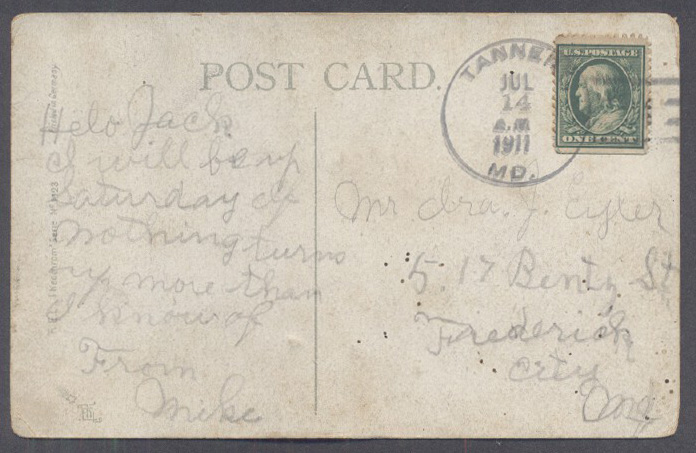 POST CARD.
TANNER
JUL
14
A.M
1911
MD.
U.S. POSTAGE
ONE CENT
Helo Jack
I will be up
Saturday if
nothing turns
up more than
I know of
From
Mike
Mr Ira. J. Eyler
5.17 Bentz St
Frederick
City
Md